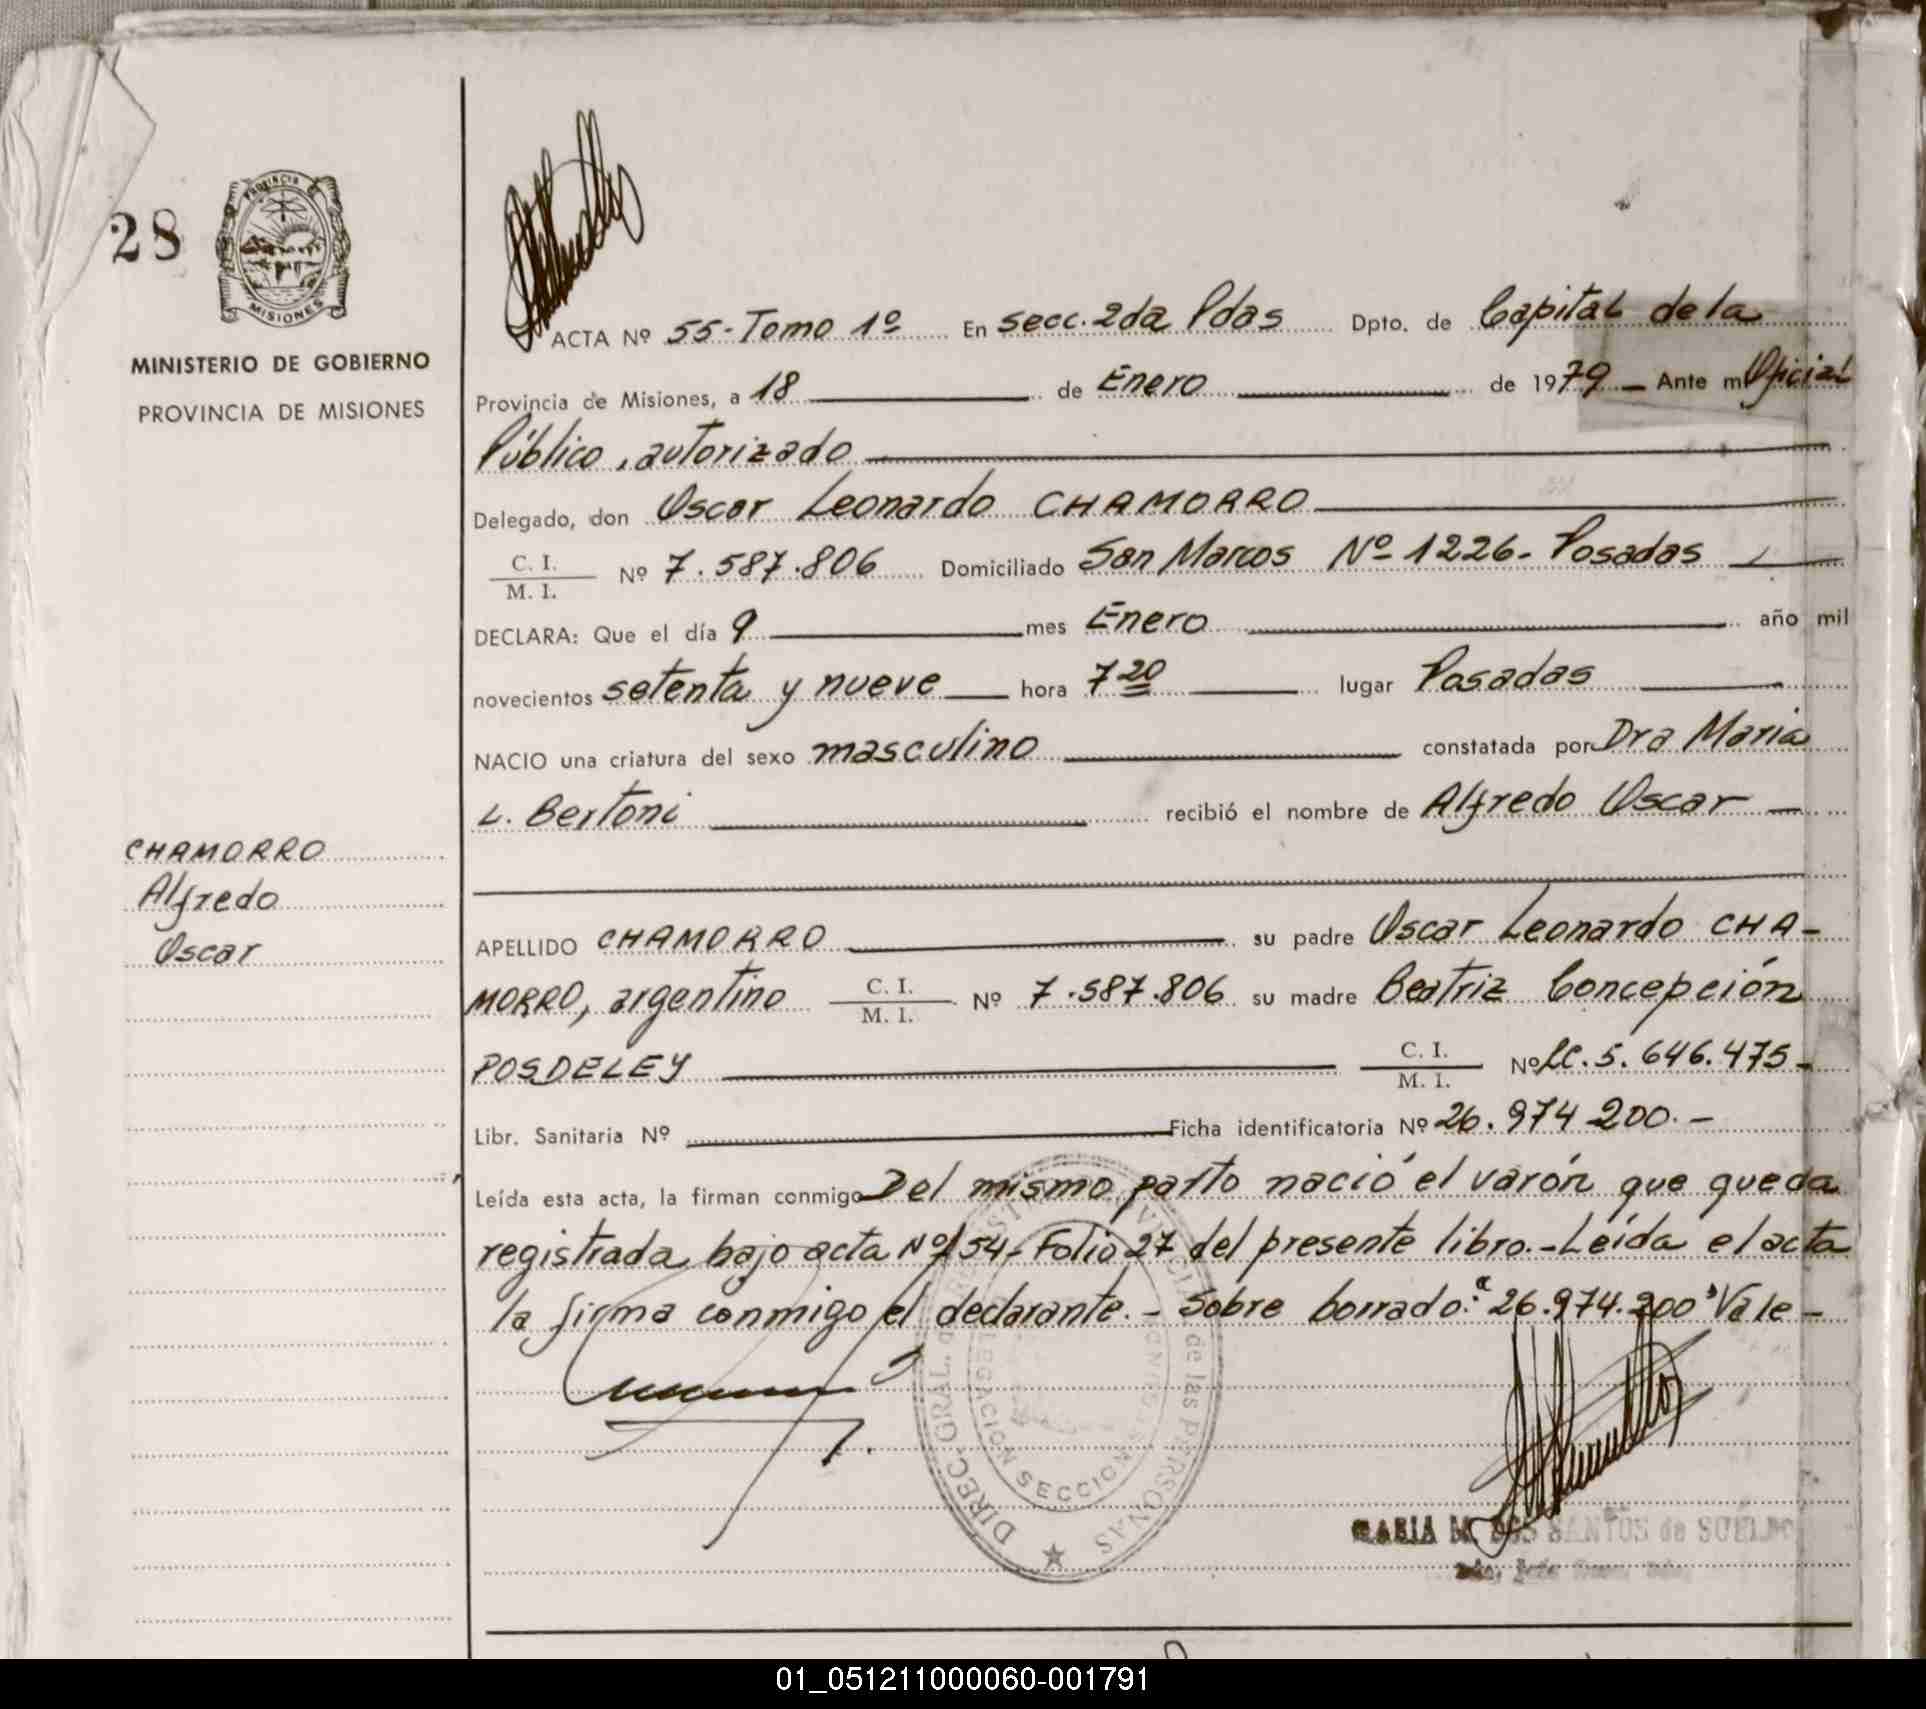 28
PROVINCIA
MISIONES
MINISTERIO DE GOBIERNO
PROVINCIA DE MISIONES
CHAMORRO
Alfredo
Oscar
ACTA Nº 55-Tomo 1º En secc. 2da Pdas Dpto. de Capital de la
Provincia de Misiones, a 18 de Enero de 1979 - Ante mi Oficial
Público, autorizado
Delegado, don Oscar Leonardo CHAMORRO
C. I.
M. I. Nº 7.587.806 Domiciliado San Marcos Nº 1226- Posadas
DECLARA: Que el día 9 mes Enero año mil
novecientos setenta y nueve hora 7 20 lugar Posadas
NACIO una criatura del sexo masculino constatada por Dra Maria
L. Bertoni recibió el nombre de Alfredo Oscar
APELLIDO CHAMORRO su padre Oscar Leonardo CHA-
MORRO, argentino C. I. M. I. Nº 7.587.806 su madre Beatriz Concepción
POSDELEY C. I. M. I. Nº LC. 5.646.475-
Libr. Sanitaria Nº Ficha identificatoria Nº 26.974 200.-
Leída esta acta, la firman conmigo Del mismo parto nació el varón que queda
registrada bajo acta Nº 54- Folio 27 del presente libro.-Leída el acta
la firma conmigo el declarante.- Sobre borrado: "26.974.200" Vale-
DIREC. GRAL. de las PERSONAS
SECCION
MARIA M. DOS SANTOS de SUELDO
01_051211000060-001791